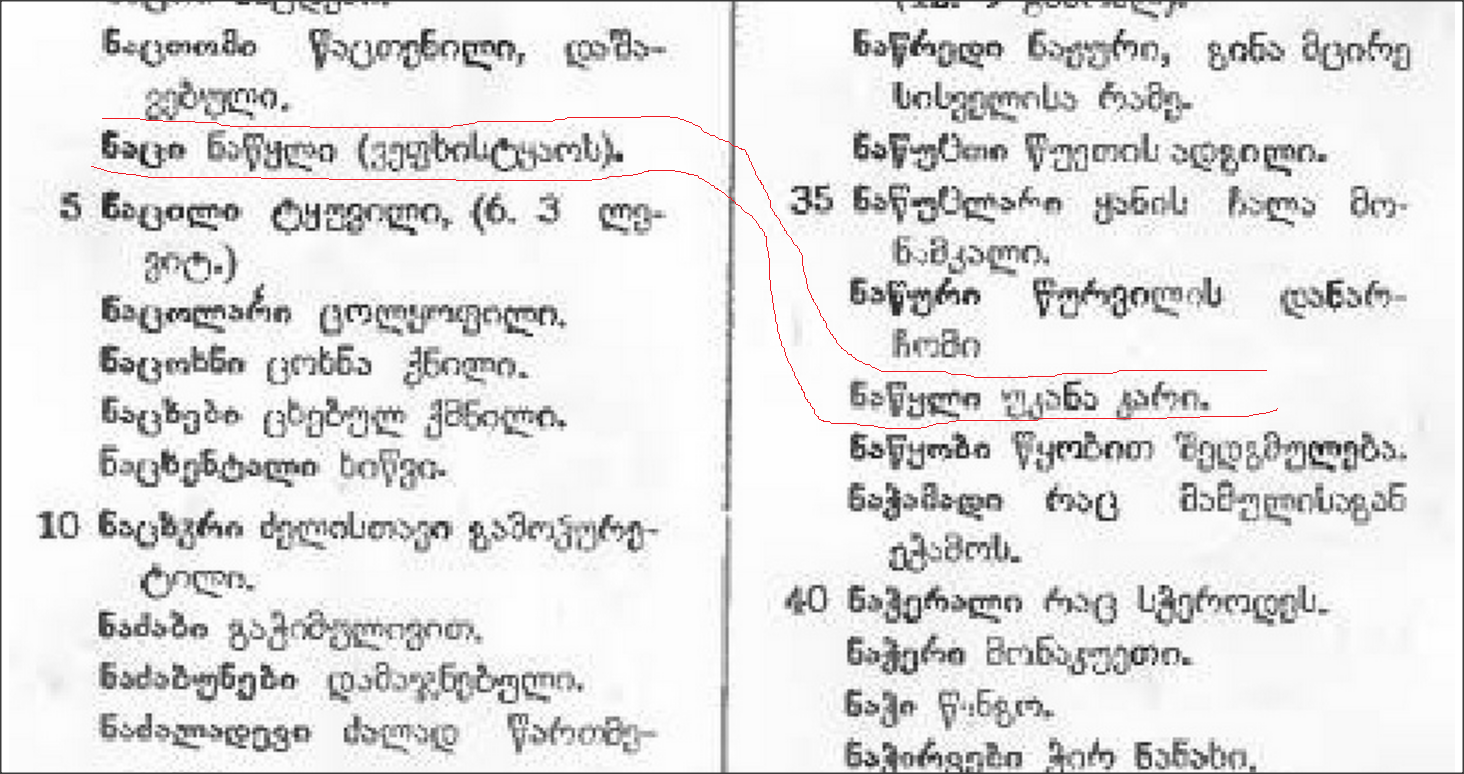 ნაცთომი წაცთენილი, დაშა-
ვებული.
ნაცი ნაწყლი (ვეფხისტყაოს).
5 ნაცილი ტყუვილი, (6. 3 ლე-
ვიტ.)
ნაცოლარი ცოლყოფილი.
ნაცოხნი ცოხნა ქნილი.
ნაცხები ცხებულ ქმნილი.
ნაცხენტალი ხიწვი.
10 ნაცხვრი ძელისთავი გამოჴურე-
ტილი.
ნაძაბი გაჭიმულივით.
ნაძაბუნები დამაჯნებული.
ნაძალადევი ძალად წართმე-
ნაწრედი ნაჟური, გინა მცირე
სისველისა რამე.
ნაწუჱთი წუეთის ადგილი.
35 ნაწუჱლარი ყანის ჩალა მო-
ნამკალი.
ნაწური წურვილის დანარ-
ჩომი
ნაწყლი უკანა კარი.
ნაწყობი წყობით შედგმულება.
ნაჭამადი რაც მამულისაგან
ეჭამოს.
40 ნაჭერალი რაც სჭეროდეს.
ნაჭერი მონაკუეთი.
ნაჭი წანგო.
ნაჭირვები ჭირ ნანახი.